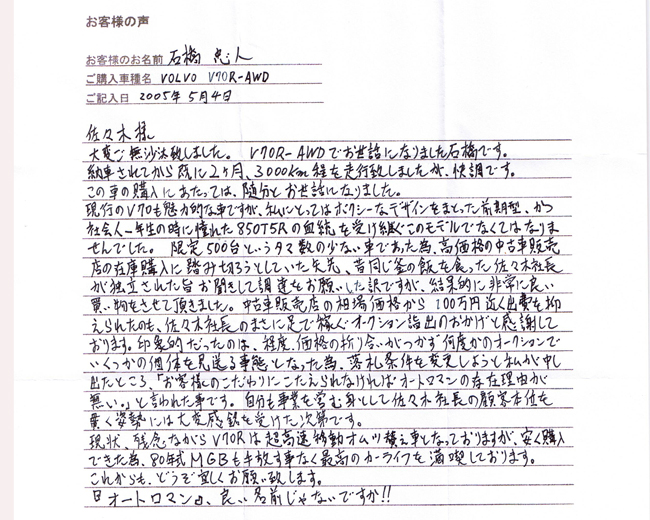 お客様の声
お客様のお名前 石橋 忠人
ご購入車種名 VOLVO V70R-AWD
ご記入日 2005年5月4日
佐々木様
大変ご無沙汰致しました。V70R-AWDでお世話になりました石橋です。
納車されてから既に2ヶ月、3000km程を走行致しましたが、快調です。
この車の購入にあたっては、随分とお世話になりました。
現行のV70も魅力的な車ですが、私にとってはボクシーなデザインをまとった前期型、かつ
社会人一年生の時に憧れた850T5Rの血統を受け継ぐこのモデルでなくてはなりま
せんでした。限定500台というタマ数の少ない車であった為、高価格の中古車販売
店の在庫購入に踏み切ろうとしていた矢先、昔同じ釜の飯を食った佐々木社長
が独立された旨お聞きして調達をお願いした訳ですが、結果的に非常に良い
買い物をさせて頂きました。中古車販売店の相場価格から100万円近く出費を抑
えられたのも、佐々木社長のまさに足で稼ぐオークション詣出のおかげと感謝して
おります。印象的だったのは、程度、価格の折り合いがつかず何度かのオークションで
いくつかの個体を見送る事態となった為、落札条件を変更しようと私が申し
出たところ、「お客様のこだわりにこたえられなければオートロマンの存在理由が
無い。」と言われた事です。自分も事業を営む身として佐々木社長の顧客本位を
貫く姿勢には大変感銘を受けた次第です。
現状、残念ながらV70Rは超高速移動オムツ替え車となっておりますが、安く購入
できた為、80年式MGBも手放す事なく最高のカーライフを満喫しております。
これからも、どうぞ宜しくお願い致します。
オートロマン、良い名前じゃないですか!!